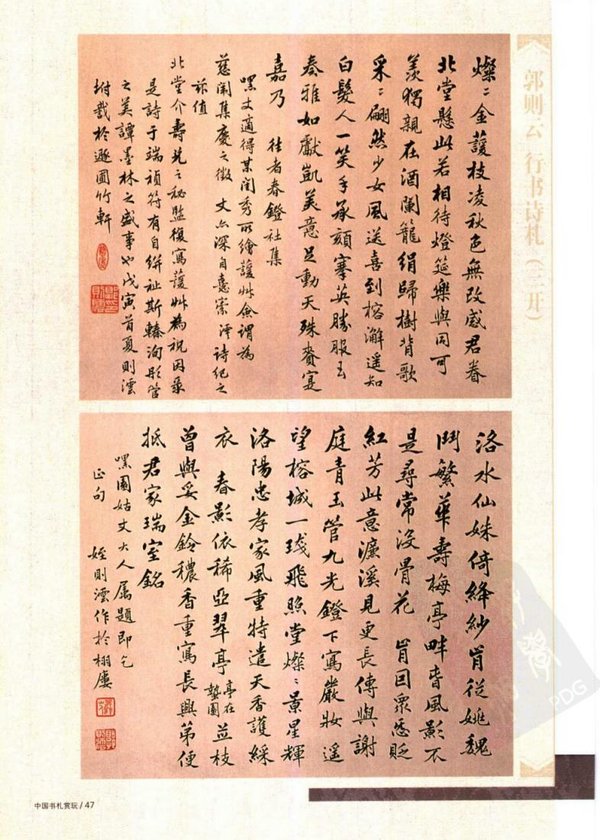 郭则云 行书诗札（二开）
燦二金護枝凌秋色無改感君眷
北堂懸此若相待燈筵樂與同可
羨獨親在酒闌籠絹歸樹背歌
采二翩然少女風送喜到榕澥遥知
白髮人一笑手承頮搴英勝服玉
奏雅如獻凱美意足動天殊賚宴
嘉乃 往者春鐙社集
嘿丈適得某閨秀所繪護草僉謂為
慈闈集慶之徵 丈亦深自憙索浮诗纪之
兹值
北堂介壽先之秘監復寫護草為祝因录
是詩于端禎符有自絣祉斯臻洵彤管
之美譚墨林之盛事也戊寅首夏則澐
坿裁於遯圃竹軒
洛水仙姝倚絳紗肯從姚魏
鬥繁華壽梅亭畔眚風影不
是尋常没骨花 肯因衆恶貶
紅芳此意濂溪見更長傳與謝
庭青玉管九光鐙下寫嚴妝遥
望榕城一琖飛照堂燦二景星輝
洛陽忠孝家風重特遣天香護綵
衣 春影依稀亞翠亭亭在墊園並枝
曾與妥金鈴穠香重寫長興弟便
抵君家瑞室銘
嘿園姑丈大人属題即乞
正句
姪則澐作於栩廔
PDG
中国书札赏玩/47